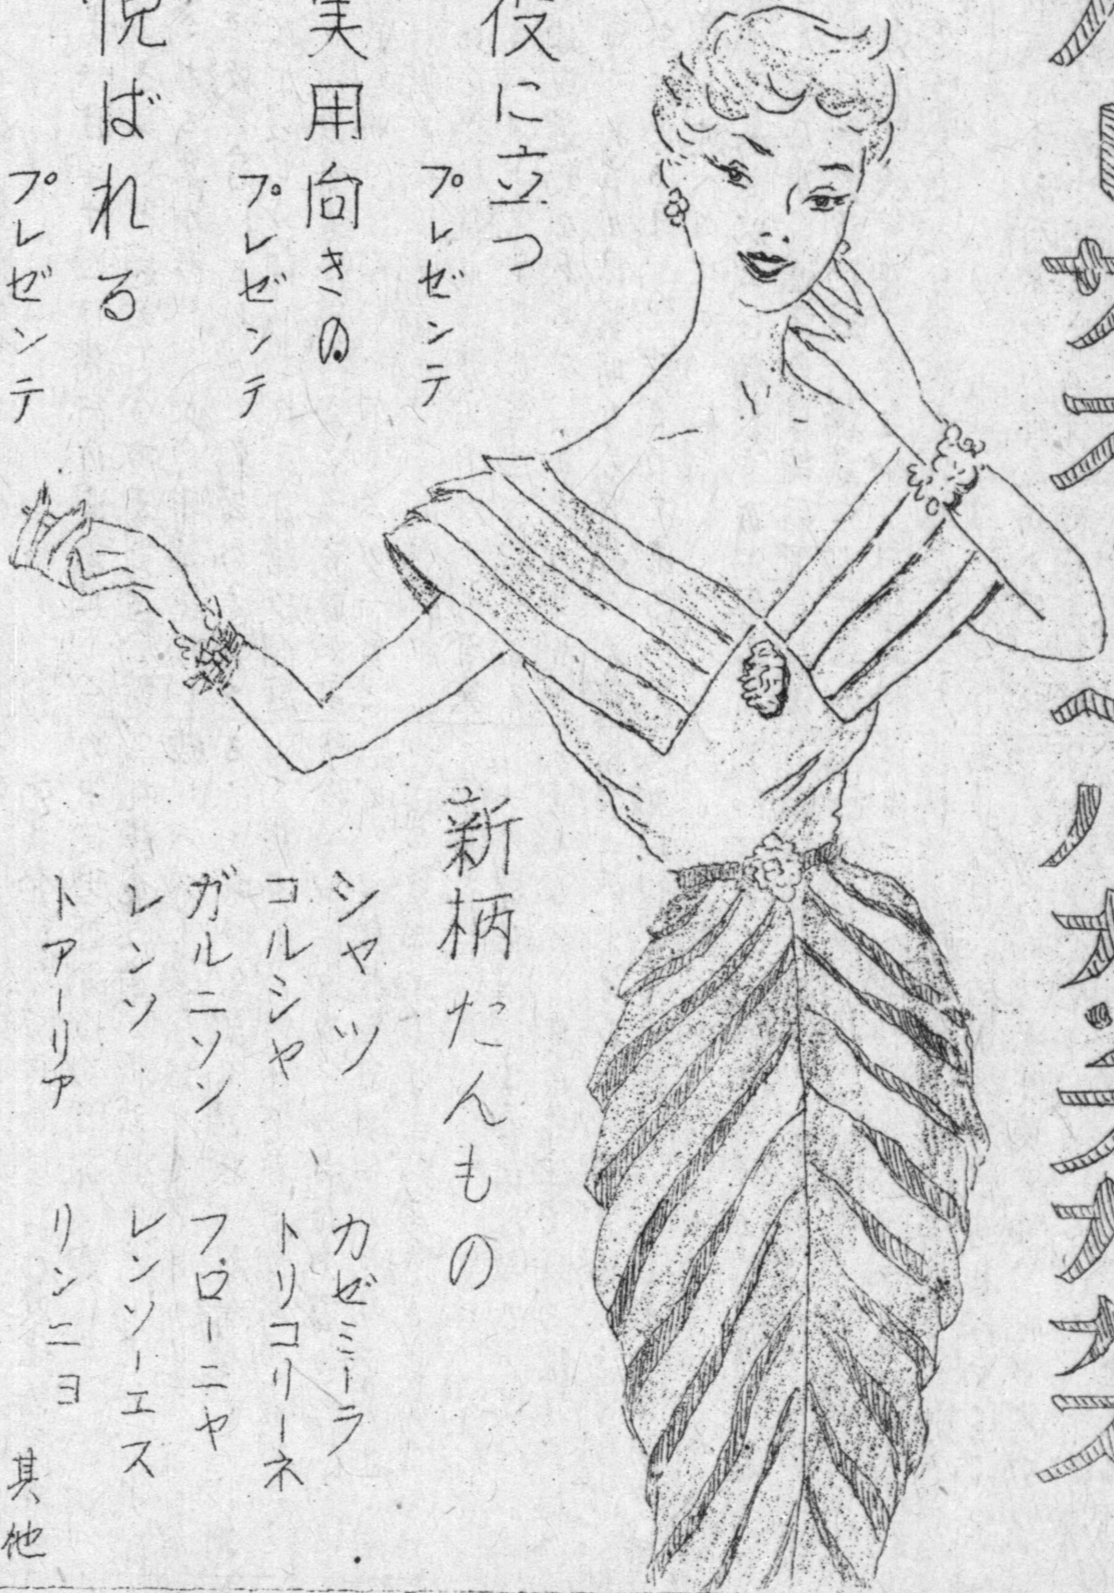 役に立つ
プレゼンテ
実用向きの
プレゼンテ
悦ばれる
プレゼンテ
新柄たんもの
シャツ カゼミーラ
コルシャ トリコリーネ
ガルニソン フローニャ
レンソ レンソーエス
トアーリア リンニヨ
其他